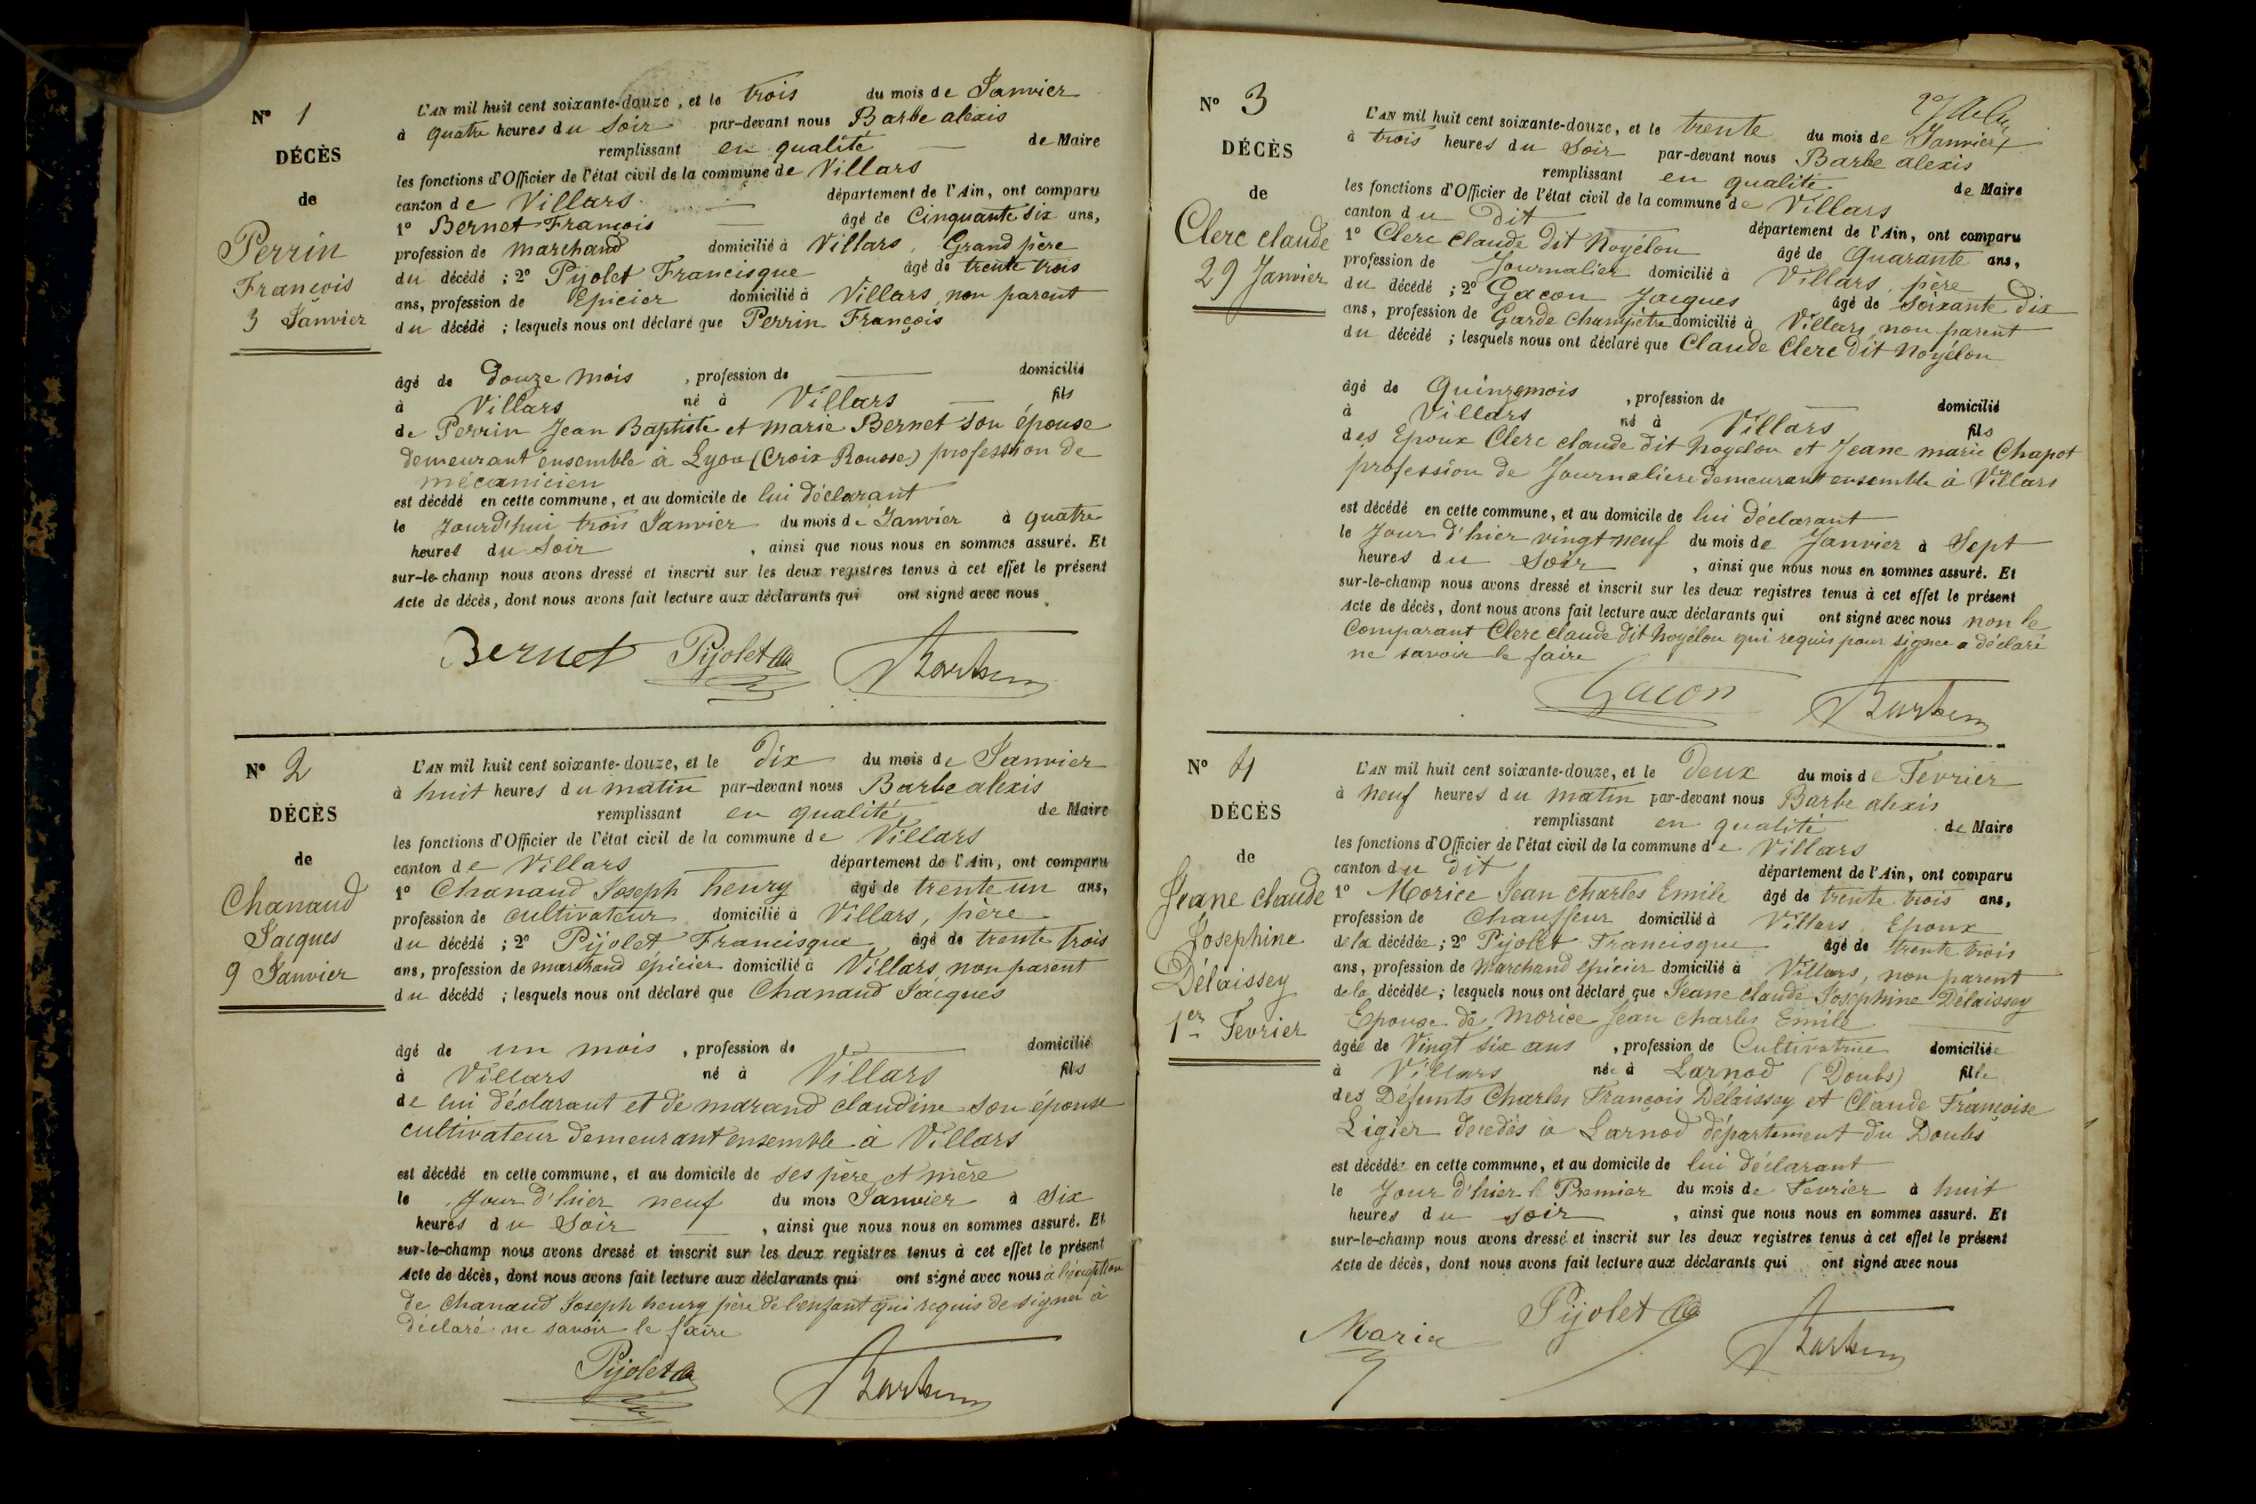 N° 1
DÉCÈS
de
Perrin
François
3 Janvier
L'AN mil huit cent soixante-douze, et le trois du mois de Janvier
à quatre heures du Soir par-devant nous Barbe alexis
remplissant en qualité de Maire
les fonctions d'Officier de l'état civil de la commune de Villars
canton de Villars département de l'Ain, ont comparu
1° Bernet François âgé de Cinquante six ans,
profession de marchand domicilié à Villars, Grand père
du décédé ; 2° Pijolet Francisque âgé de trente trois
ans, profession de Epicier domicilié à Villars, non parent
du décédé ; lesquels nous ont déclaré que Perrin François
âgé de Douze mois , profession de domicilié
à Villars né à Villars fils
de Perrin Jean Baptiste et marie Bernet son épouse
demeurant ensemble à Lyon (Croix Rousse) profession de
mécanicien
est décédé en cette commune, et au domicile de lui déclarant
le Jourd'hui trois Janvier du mois de Janvier à quatre
heures du Soir , ainsi que nous nous en sommes assuré. Et
sur-le-champ nous avons dressé et inscrit sur les deux registres tenus à cet effet le présent
Acte de décès, dont nous avons fait lecture aux déclarants qui ont signé avec nous
Bernet Pijolet
N° 2
DÉCÈS
de
Chanaud
Jacques
9 Janvier
L'AN mil huit cent soixante-douze, et le Dix du mois de Janvier
à huit heures du matin par-devant nous Barbe alexis
remplissant en qualité de Maire
les fonctions d'Officier de l'état civil de la commune de Villars
canton de Villars département de l'Ain, ont comparu
1° Chanaud Joseph henry âgé de trente un ans,
profession de cultivateur domicilié à Villars, père
du décédé ; 2° Pijolet Francisque âgé de trente trois
ans, profession de marchand épicier domicilié à Villars, non parent
du décédé ; lesquels nous ont déclaré que Chanaud Jacques
âgé de un mois , profession de domicilié
à Villars né à Villars fils
de lui déclarant et de marand claudine son épouse
cultivateur demeurant ensemble à Villars
est décédé en cette commune, et au domicile de ses père et mère
le Jour d'hier neuf du mois Janvier à Six
heures du Soir , ainsi que nous nous en sommes assuré. Et
sur-le-champ nous avons dressé et inscrit sur les deux registres tenus à cet effet le présent
Acte de décès, dont nous avons fait lecture aux déclarants qui ont signé avec nous à l'exception
de Chanaud Joseph henry père de l'enfant qui requis de signer à
déclaré ne savoir le faire
Pijolet
N° 3
DÉCÈS
de
Clerc claude
29 Janvier
L'AN mil huit cent soixante-douze, et le trente du mois de Janvier
à trois heures du Soir par-devant nous Barbe alexis
remplissant en qualité de Maire
les fonctions d'Officier de l'état civil de la commune de Villars
canton du Dit département de l'Ain, ont comparu
1° Clerc Claude dit Noyélon âgé de Quarante ans,
profession de Journalier domicilié à Villars, père
du décédé ; 2° Gacon Jacques âgé de Soixante Dix
ans, profession de Garde champêtre domicilié à Villars non parent
du décédé ; lesquels nous ont déclaré que Claude Clerc dit Noyélon
âgé de Quinze mois , profession de domicilié
à Villars né à Villars fils
des Epoux Clerc claude dit Noyelon et Jeane marie Chapot
profession de Journaliere demeurant ensemble à Villars
est décédé en cette commune, et au domicile de lui déclarant
le Jour d'hier vingt neuf du mois de Janvier à Sept
heures du Soir , ainsi que nous nous en sommes assuré. Et
sur-le-champ nous avons dressé et inscrit sur les deux registres tenus à cet effet le présent
Acte de décès, dont nous avons fait lecture aux déclarants qui ont signé avec nous non le
Comparant Clerc claude dit Noyélon qui requis pour signer a déclaré
ne savoir le faire
Gacon
N° 4
DÉCÈS
de
Jeane claude
Josephine
Délaissey
1er Fevrier
L'AN mil huit cent soixante-douze, et le Deux du mois de Fevrier
à Neuf heures du matin par-devant nous Barbe alexis
remplissant en qualité de Maire
les fonctions d'Officier de l'état civil de la commune de Villars
canton du dit département de l'Ain, ont comparu
1° Morice Jean charles Emile âgé de trente trois ans,
profession de Chauffeur domicilié à Villars, Epoux
de la décédée ; 2° Pijolet Francisque âgé de trente trois
ans, profession de Marchand épicier domicilié à Villars, non parent
de la décédée ; lesquels nous ont déclaré que Jeane claude Joséphine Délaissey
Epouse de Morice Jean charles Emile
âgée de Vingt six ans , profession de Cultivatrice domiciliée
à Villars née à Larnod (Doubs) fille
des Défunts Charles François Délaissey et Claude Françoise
Ligier décédés à Larnod département du Doubs
est décédée en cette commune, et au domicile de lui déclarant
le Jour d'hier le Premier du mois de Fevrier à huit
heures du soir , ainsi que nous nous en sommes assuré. Et
sur-le-champ nous avons dressé et inscrit sur les deux registres tenus à cet effet le présent
Acte de décès, dont nous avons fait lecture aux déclarants qui ont signé avec nous
Pijolet